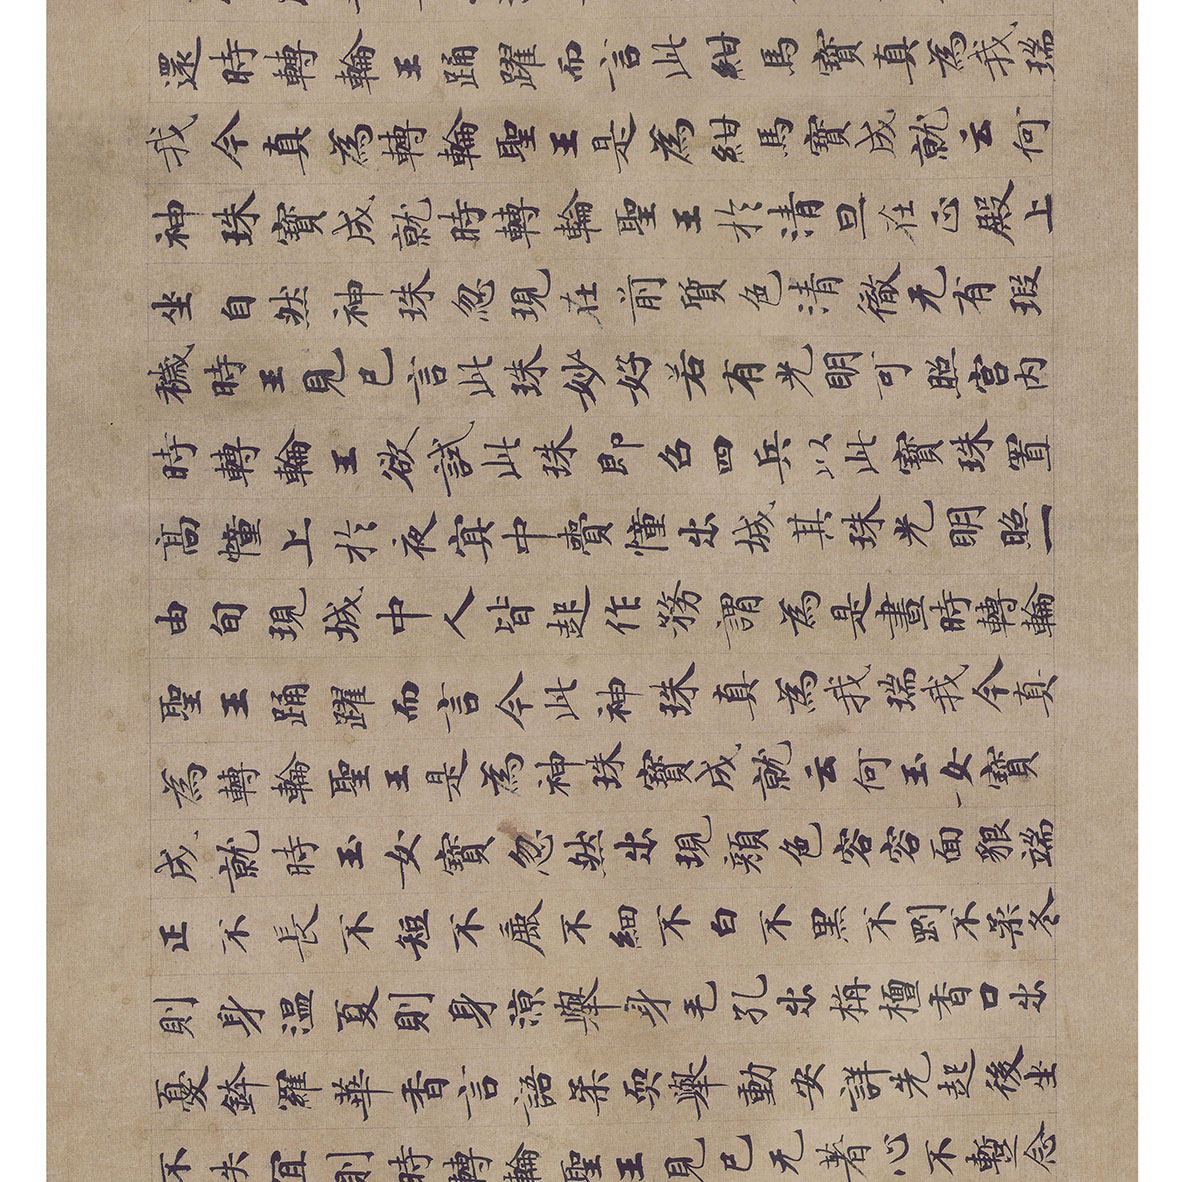 還時轉輪王踊躍而言此紺馬寶真為我瑞
我今真為轉輪聖王是為紺馬寶成就云何
神珠寶成就時轉輪聖王於清旦在正殿上
坐自然神珠忽現在前質色清徹无有瑕
穢時王見已言此珠妙好若有光明可照宮内
時轉輪王欲試此珠即召四兵以此寶珠置
高幢上於夜冥中賷幢出城其珠光明照一
由旬現城中人皆起作務謂為是晝時轉輪
聖王踊躍而言今此神珠真為我瑞我今真
為轉輪聖王是為神珠寶成就云何玉女寶
成就時玉女寶忽然出現顔色容容面貌端
正不長不短不麁不細不白不黒不剛不柔冬
則身温夏則身涼舉身毛孔出栴檀香口出
憂鉢羅華香言語柔耎舉動安詳先起後坐
不失宜則時轉輪聖王見已无著心不暫念